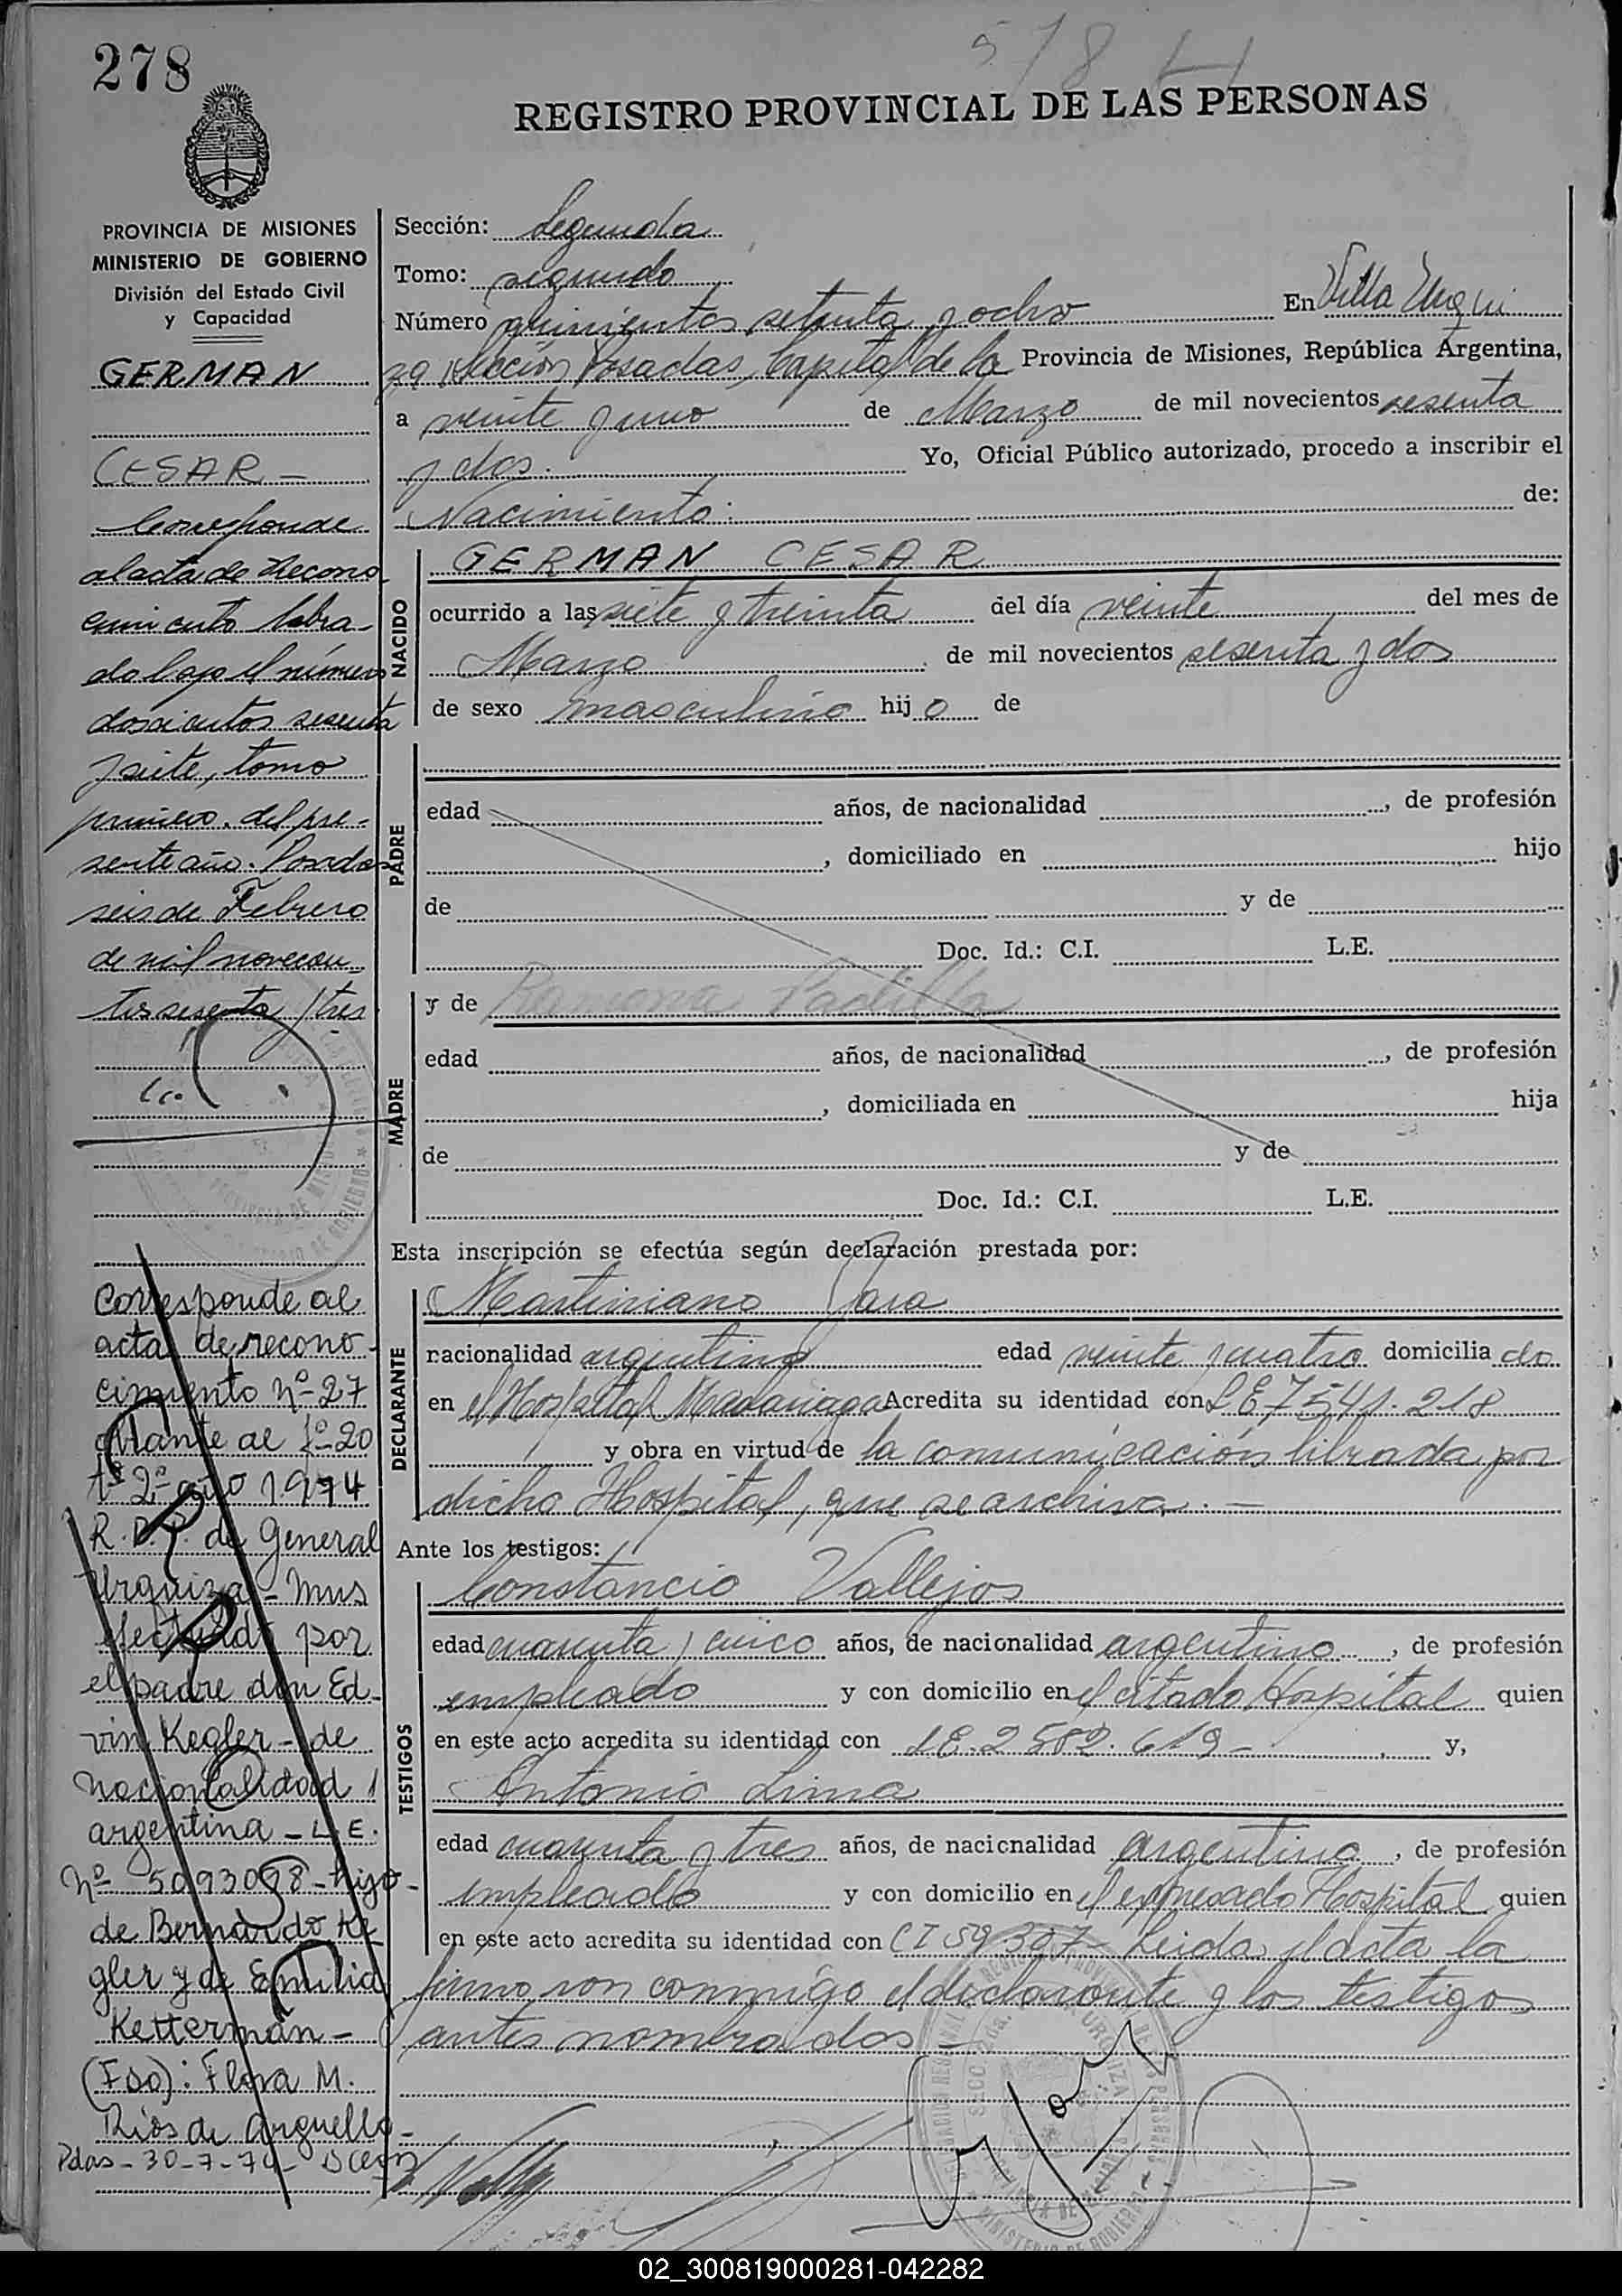 278
578
REGISTRO PROVINCIAL DE LAS PERSONAS
PROVINCIA DE MISIONES
MINISTERIO DE GOBIERNO
División del Estado Civil
y Capacidad
GERMAN
CESAR -
Corresponde
al acta de recono
cimiento labra-
do bajo el número
doscientos sesenta
y siete, tomo
primero. del pre-
sente año. Posadas
seis de Febrero
de mil novecien-
tos sesenta y tres
Corresponde al
acta de recono-
cimiento nº 27
obrante al fº 20
tº 2º año 1974
R.D.P. de General
Urquiza - Mns
efectuado por
el padre don Ed-
vin Kegler - de
nacionalidad
argentina - L.E.
Nº 5093098 - hijo -
de Bernardo Ke
gler y de Emilia
Ketterman -
(Fdo): Flora M.
Ríos de Arguello -
Pdas - 30-7-74-
Sección: Segunda
Tomo: segundo
Número quinientos setenta y ocho En Villa Urqui
za Sección Posadas, Capital de la Provincia de Misiones, República Argentina,
a veinte y uno de Marzo de mil novecientos sesenta
y dos. Yo, Oficial Público autorizado, procedo a inscribir el
Nacimiento: de:
NACIDO
GERMAN CESAR
ocurrido a las siete y treinta del día veinte del mes de
Marzo de mil novecientos sesenta y dos
de sexo masculino hijo de
PADRE
edad años, de nacionalidad , de profesión
, domiciliado en hijo
de y de
Doc. Id.: C.I. L.E.
MADRE
y de Ramona Padilla
edad años, de nacionalidad , de profesión
, domiciliada en hija
de y de
Doc. Id.: C.I. L.E.
Esta inscripción se efectúa según declaración prestada por:
DECLARANTE
Martiniano Jara
nacionalidad argentino edad veinte y cuatro domiciliado
en el Hospital Madariaga Acredita su identidad con L E 7541.218
y obra en virtud de la comunicación librada por
dicho Hospital, que se archiva. -
Ante los testigos:
TESTIGOS
Constancio Vallejos
edad cuarenta y cinco años, de nacionalidad argentino , de profesión
empleado y con domicilio en el citado Hospital quien
en este acto acredita su identidad con L E. 2582.619 - y,
Antonio Lima
edad cuarenta y tres años, de nacionalidad argentino , de profesión
empleado y con domicilio en el expresado Hospital quien
en este acto acredita su identidad con C I 59397 - Leída el acta la
firmaron conmigo el declarante y los testigos
antes nombrados -
02_300819000281-042282